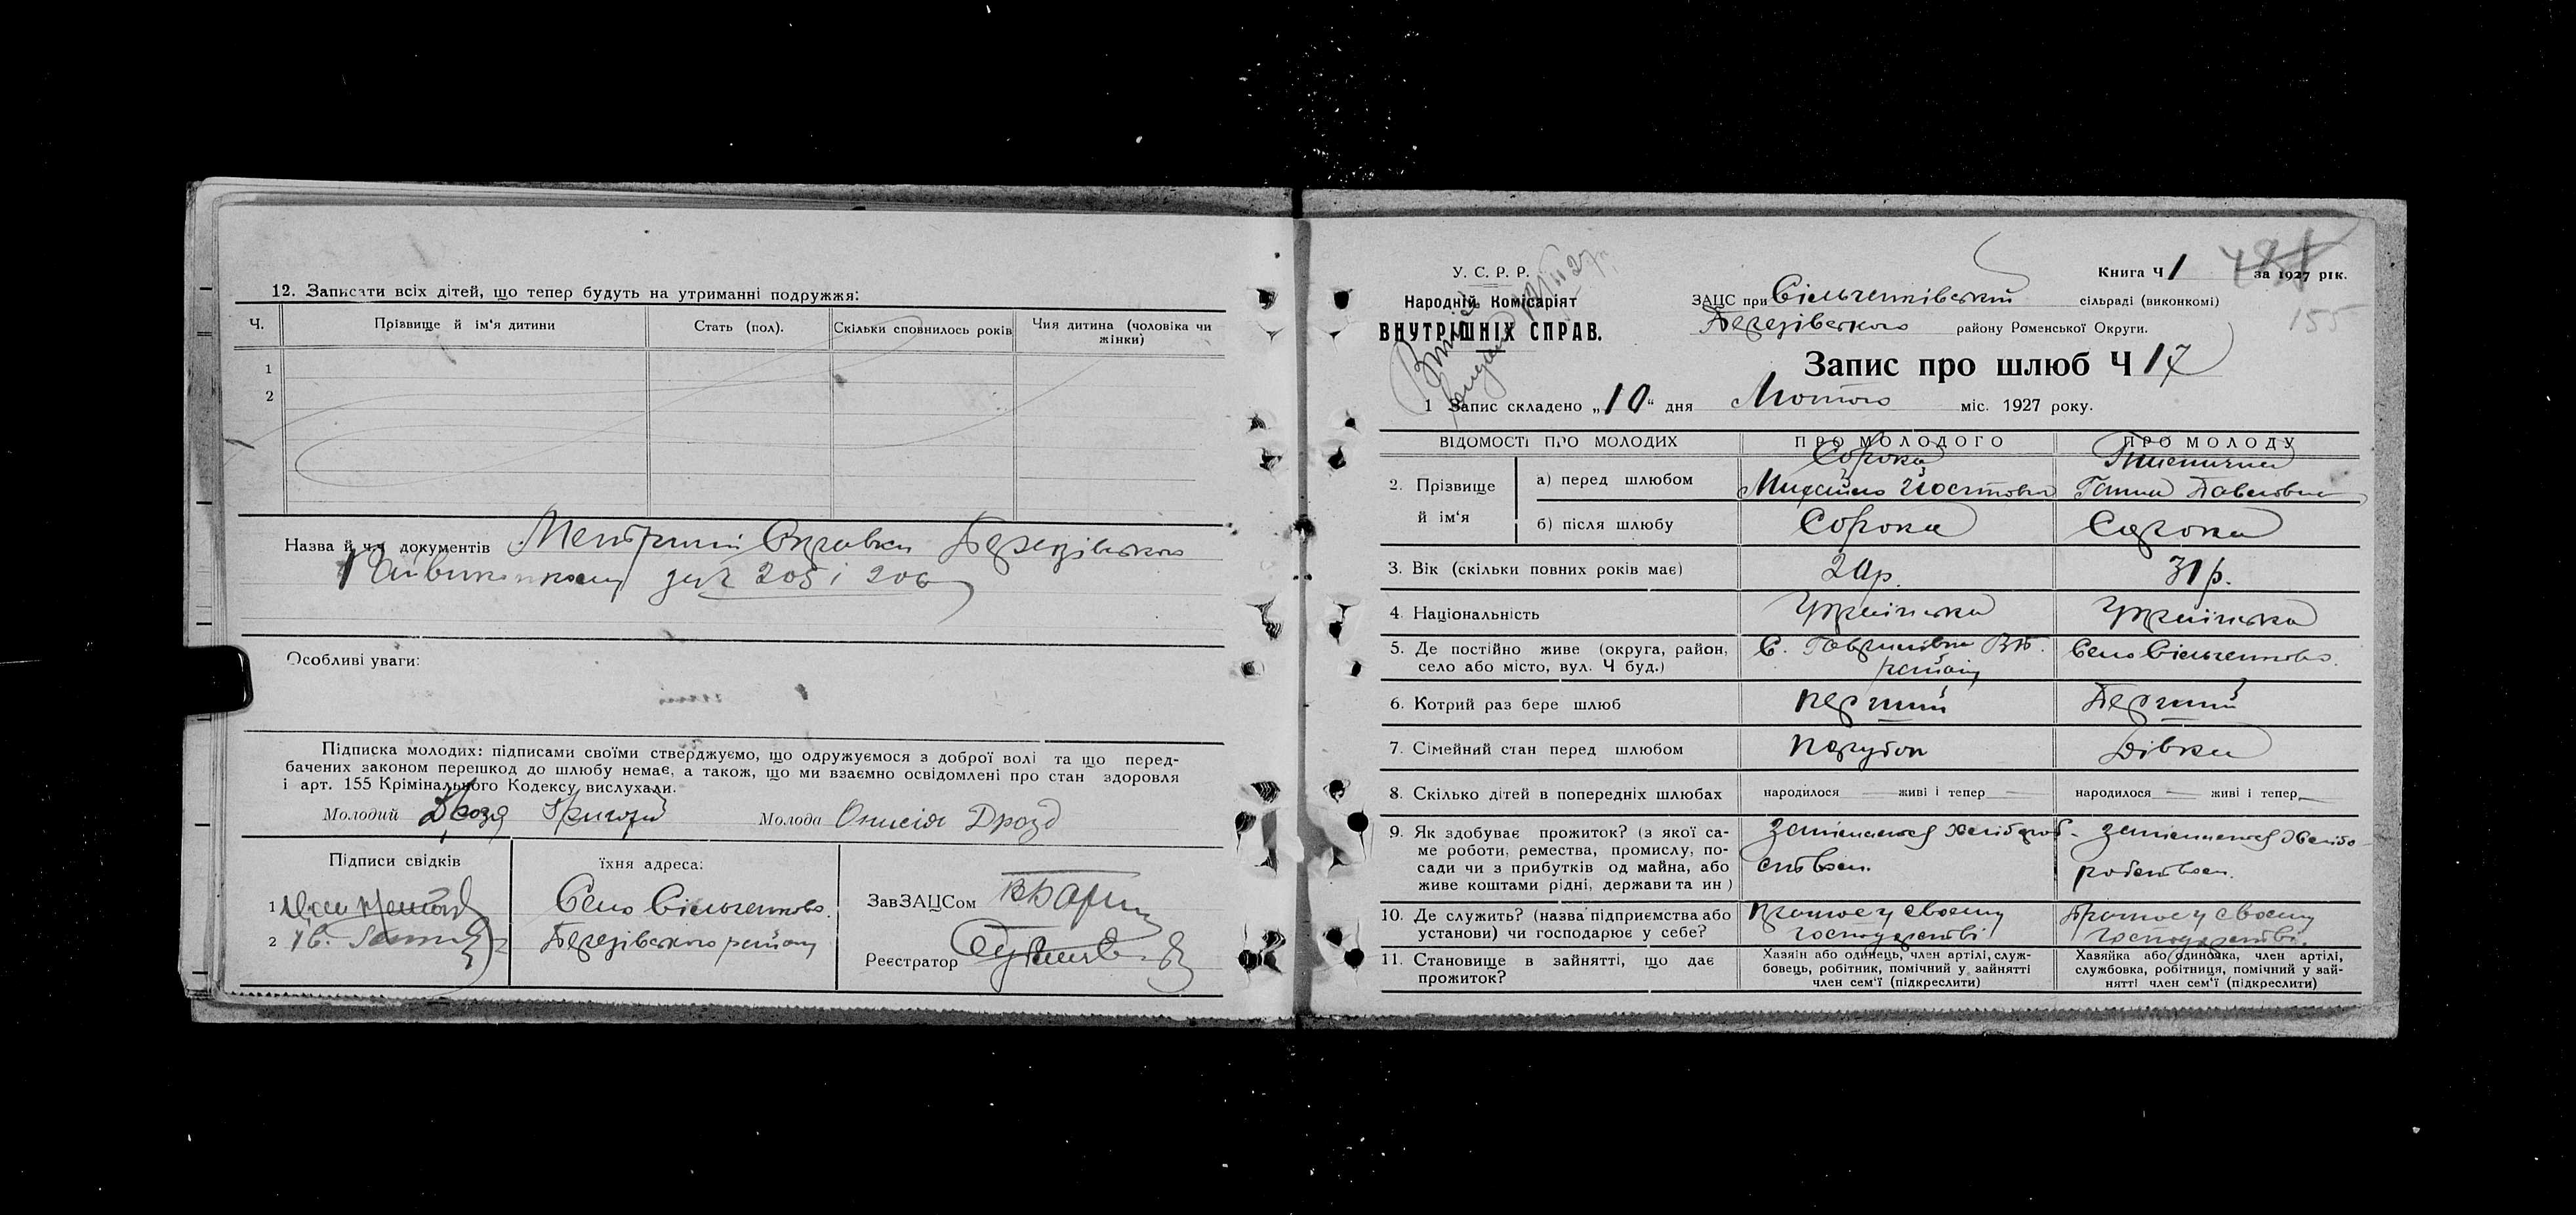 12. Записати всіх дітей, що тепер будуть на утриманні подружжя:
Ч. Прізвище й ім'я дитини Стать (пол). Скільки сповнилось років Чия дитина (чоловіка чи жінки)
1
2
Назва й ч.ч документів Метричні Справки Березівського
Райвиконкому за ч 205 і 206
Особливі уваги:
Підписка молодих: підписами своїми стверджуємо, що одружуємося з доброї волі та що перед-
бачених законом перешкод до шлюбу немає, а також, що ми взаємно освідомлені про стан здоровля
і арт. 155 Крімінального Кодексу вислухали.
Молодий Дрозд Григорій Молода Онисія Дрозд
Підписи свідків їхня адреса:
1 Село Сільченково. ЗавЗАЦСом
2 Березівського району Реєстратор
У. С. Р. Р.
Народній Комісаріят
ВНУТРІШНІХ СПРАВ.
Книга Ч 1 за 1927 рік.
155
ЗАЦС при Сільченківській сільраді (виконкомі)
Березівського району Роменської Округи.
Запис про шлюб Ч 17
1 Запис складено „10“ дня Лютого міс. 1927 року.
ВІДОМОСТІ ПРО МОЛОДИХ ПРО МОЛОДОГО ПРО МОЛОДУ
2. Прізвище й ім'я а) перед шлюбом Сорока Михайло Йостович Пшенична Ганна Павловна
б) після шлюбу Сорока Сорока
3. Вік (скільки повних років має) 20р. 31р.
4. Національність Українська Українська
5. Де постійно живе (округа, район, С. Гаврилівка району Село Сільченково.
село або місто, вул. Ч буд.)
6. Котрий раз бере шлюб перший Перший
7. Сімейний стан перед шлюбом парубок Дівка
8. Скілько дітей в попередніх шлюбах народилося — живі і тепер — народилося — живі і тепер —
9. Як здобуває прожиток? (з якої са- занімается хлібороб- занімается хлібо-
ме роботи, ремества, промислу, по- ством. робством.
сади чи з прибутків од майна, або
живе коштами рідні, держави та ин)
10. Де служить? (назва підприємства або Працює у своему Працює у своему
установи) чи господарює у себе? господарстві господарстві.
11. Становище в зайнятті, що дає Хазяїн або одинець, член артілі, служ- Хавяйка або одиночка, член артілі,
прожиток? бовець, робітник, помічний у зайнятті службовка, робітниця, помічний у зай-
член сем'ї (підкреслити) нятті член сем'ї (підкреслити)